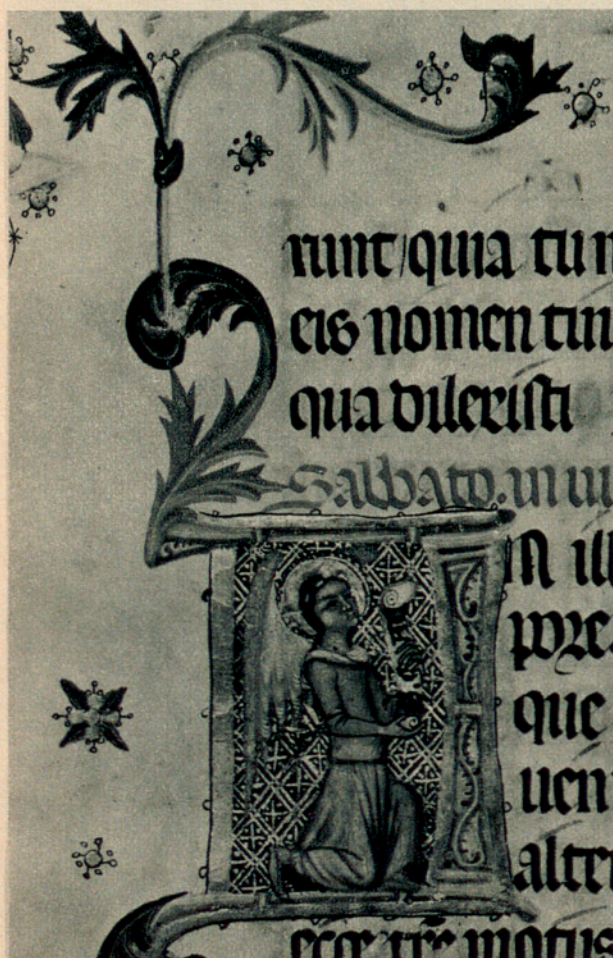 runt quia tu m
eis nomen tuu
qua dilexisti
Sabbato. in ui
N ill
pore.
que
uen
alter
ecce tre motus